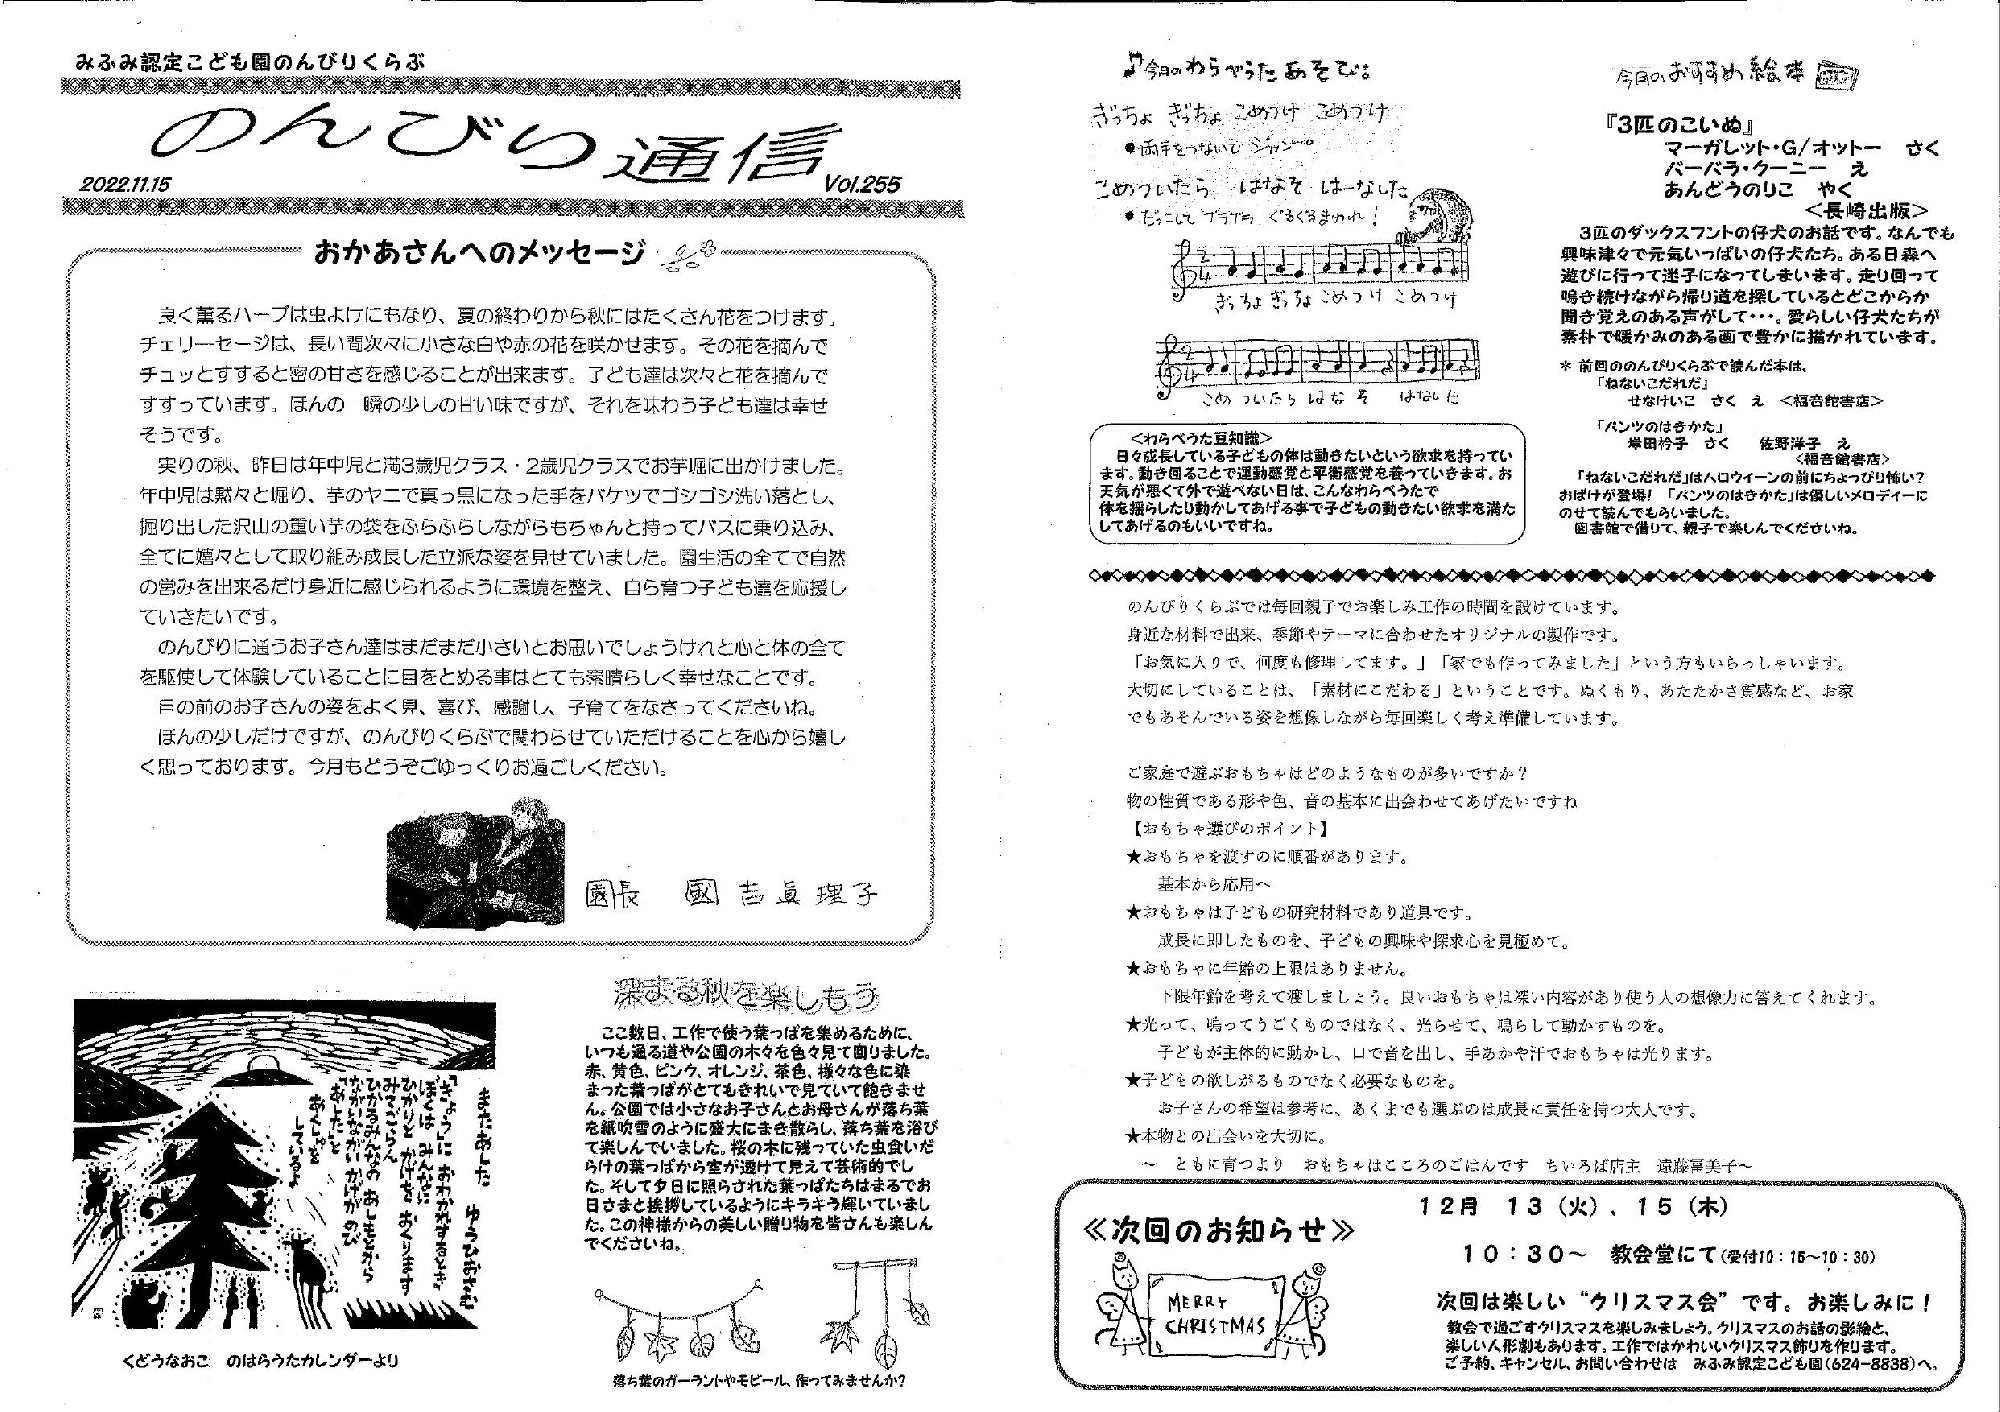 みふみ認定こども園のんびりくらぶ
のんびり通信
2022.11.15
Vol.255
おかあさんへのメッセージ
良く薫るハーブは虫よけにもなり、夏の終わりから秋にはたくさん花をつけます。
チェリーセージは、長い間次々に小さな白や赤の花を咲かせます。その花を摘んで
チュッとすすると密の甘さを感じることが出来ます。子ども達は次々と花を摘んで
すすっています。ほんの一瞬の少しの甘い味ですが、それを味わう子ども達は幸せ
そうです。
実りの秋、昨日は年中児と満3歳児クラス・2歳児クラスでお芋堀に出かけました。
年中児は黙々と堀り、芋のヤニで真っ黒になった手をバケツでゴシゴシ洗い落とし、
掘り出した沢山の重い芋の袋をふらふらしながらもちゃんと持ってバスに乗り込み、
全てに嬉々として取り組み成長した立派な姿を見せていました。園生活の全てで自然
の営みを出来るだけ身近に感じられるように環境を整え、自ら育つ子ども達を応援し
ていきたいです。
のんびりに通うお子さん達はまだまだ小さいとお思いでしょうけれと心と体の全て
を駆使して体験していることに目をとめる事はとても素晴らしく幸せなことです。
目の前のお子さんの姿をよく見、喜び、感謝し、子育てをなさってくださいね。
ほんの少しだけですが、のんびりくらぶで関わらせていただけることを心から嬉し
く思っております。今月もどうぞごゆっくりお過ごしください。
園長 國吉眞理子
またあした ゆうひおさむ
「きょう」に おわかれするとき
ぼくは みんなに
ひかりと かげを おくります
みてごらん
ひかるみんなの あしもとから
ながいながい かげがのび
「あした」と
あくしゅを
しているよ
くどうなおこ のはらうたカレンダーより
深まる秋を楽しもう
ここ数日、工作で使う葉っぱを集めるために、
いつも通る道や公園の木々を色々見て回りました。
赤、黄色、ピンク、オレンジ、茶色、様々な色に染
まった葉っぱがとてもきれいで見ていて飽きませ
ん。公園では小さなお子さんとお母さんが落ち葉
を紙吹雪のように盛大にまき散らし、落ち葉を浴び
て楽しんでいました。桜の木に残っていた虫食いだ
らけの葉っぱから空が透けて見えて芸術的でし
た。そして夕日に照らされた葉っぱたちはまるでお
日さまと挨拶しているようにキラキラ輝いていまし
た。この神様からの美しい贈り物を皆さんも楽しん
でくださいね。
落ち葉のガーランドやモビール、作ってみませんか？
♪今月のわらべうたあそび♪
ぎっちょ ぎっちょ こめつけ こめつけ
●両手をつないで ジャンプ
こめついたら はなそ はーなした
●だっこして ブラブラ ぐるぐるまわれ！
ぎっちょ ぎっちょ こめつけ こめつけ
こめついたら はなそ はなした
＜わらべうた豆知識＞
日々成長している子どもの体は動きたいという欲求を持ってい
ます。動き回ることで運動感覚と平衡感覚を養っていきます。お
天気が悪くて外で遊べない日は、こんなわらべうたで
体を揺らしたり動かしてあげる事で子どもの動きたい欲求を満た
してあげるのもいいですね。
今月のおすすめ絵本
『3匹のこいぬ』
マーガレット・G/オットー さく
バーバラ・クーニー え
あんどうのりこ やく
＜長崎出版＞
3匹のダックスフントの仔犬のお話です。なんでも
興味津々で元気いっぱいの仔犬たち。ある日森へ
遊びに行って迷子になってしまいます。走り回って
鳴き続けながら帰り道を探しているとどこからか
聞き覚えのある声がして・・・。愛らしい仔犬たちが
素朴で暖かみのある画で豊かに描かれています。
＊ 前回ののんびりくらぶで読んだ本は、
「ねないこだれだ」
せなけいこ さく え ＜福音館書店＞
「パンツのはきかた」
岸田衿子 さく 佐野洋子 え
＜福音館書店＞
「ねないこだれだ」はハロウィーンの前にちょっぴり怖い？
おばけが登場！「パンツのはきかた」は優しいメロディーに
のせて読んでもらいました。
図書館で借りて、親子で楽しんでくださいね。
のんびりくらぶでは毎回親子でお楽しみ工作の時間を設けています。
身近な材料で出来、季節やテーマに合わせたオリジナルの製作です。
「お気に入りで、何度も修理してます。」「家でも作ってみました」という方もいらっしゃいます。
大切にしていることは、「素材にこだわる」ということです。ぬくもり、あたたかさ質感など、お家
でもあそんでいる姿を想像しながら毎回楽しく考え準備しています。
ご家庭で遊ぶおもちゃはどのようなものが多いですか？
物の性質である形や色、音の基本に出会わせてあげたいですね
【おもちゃ選びのポイント】
★おもちゃを渡すのに順番があります。
基本から応用へ
★おもちゃは子どもの研究材料であり道具です。
成長に即したものを、子どもの興味や探求心を見極めて。
★おもちゃに年齢の上限はありません。
下限年齢を考えて渡しましょう。良いおもちゃは深い内容があり使う人の想像力に答えてくれます。
★光って、鳴ってうごくものではなく、光らせて、鳴らして動かすものを。
子どもが主体的に動かし、口で音を出し、手あかや汗でおもちゃは光ります。
★子どもの欲しがるものでなく必要なものを。
お子さんの希望は参考に、あくまでも選ぶのは成長に責任を持つ大人です。
★本物との出会いを大切に。
～ ともに育つより おもちゃはこころのごはんです ちいろば店主 遠藤冨美子～
≪次回のお知らせ≫
12月 13（火）、15（木）
10：30～ 教会堂にて（受付10：15～10：30）
MERRY
CHRISTMAS
次回は楽しい“クリスマス会”です。お楽しみに！
教会で過ごすクリスマスを楽しみましょう。クリスマスのお話の影絵と、
楽しい人形劇もあります。工作ではかわいいクリスマス飾りを作ります。
ご予約、キャンセル、お問い合わせは みふみ認定こども園（624-8838）へ。